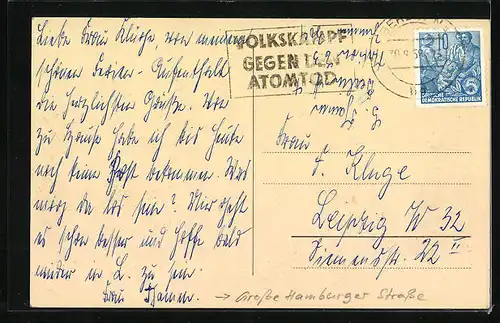 Liebe Frau Kluge, von meinem
schönen Ferien-Aufenthalt
die herzlichsten Grüße. Von
zu Hause habe ich bis heute
noch keine Post bekommen. Was
mag da los sein? Mir geht
es schon besser und hoffe bald
wieder in L. zu sein.
Frau Hamm.
VOLKSKAMPF
GEGEN DEN
ATOMTOD
10
DEUTSCHE
DEMOKRATISCHE REPUBLIK
Frau
F. Kluge
Leipzig W 32
Siemensstr. 22 II
→ Große Hamburger Straße